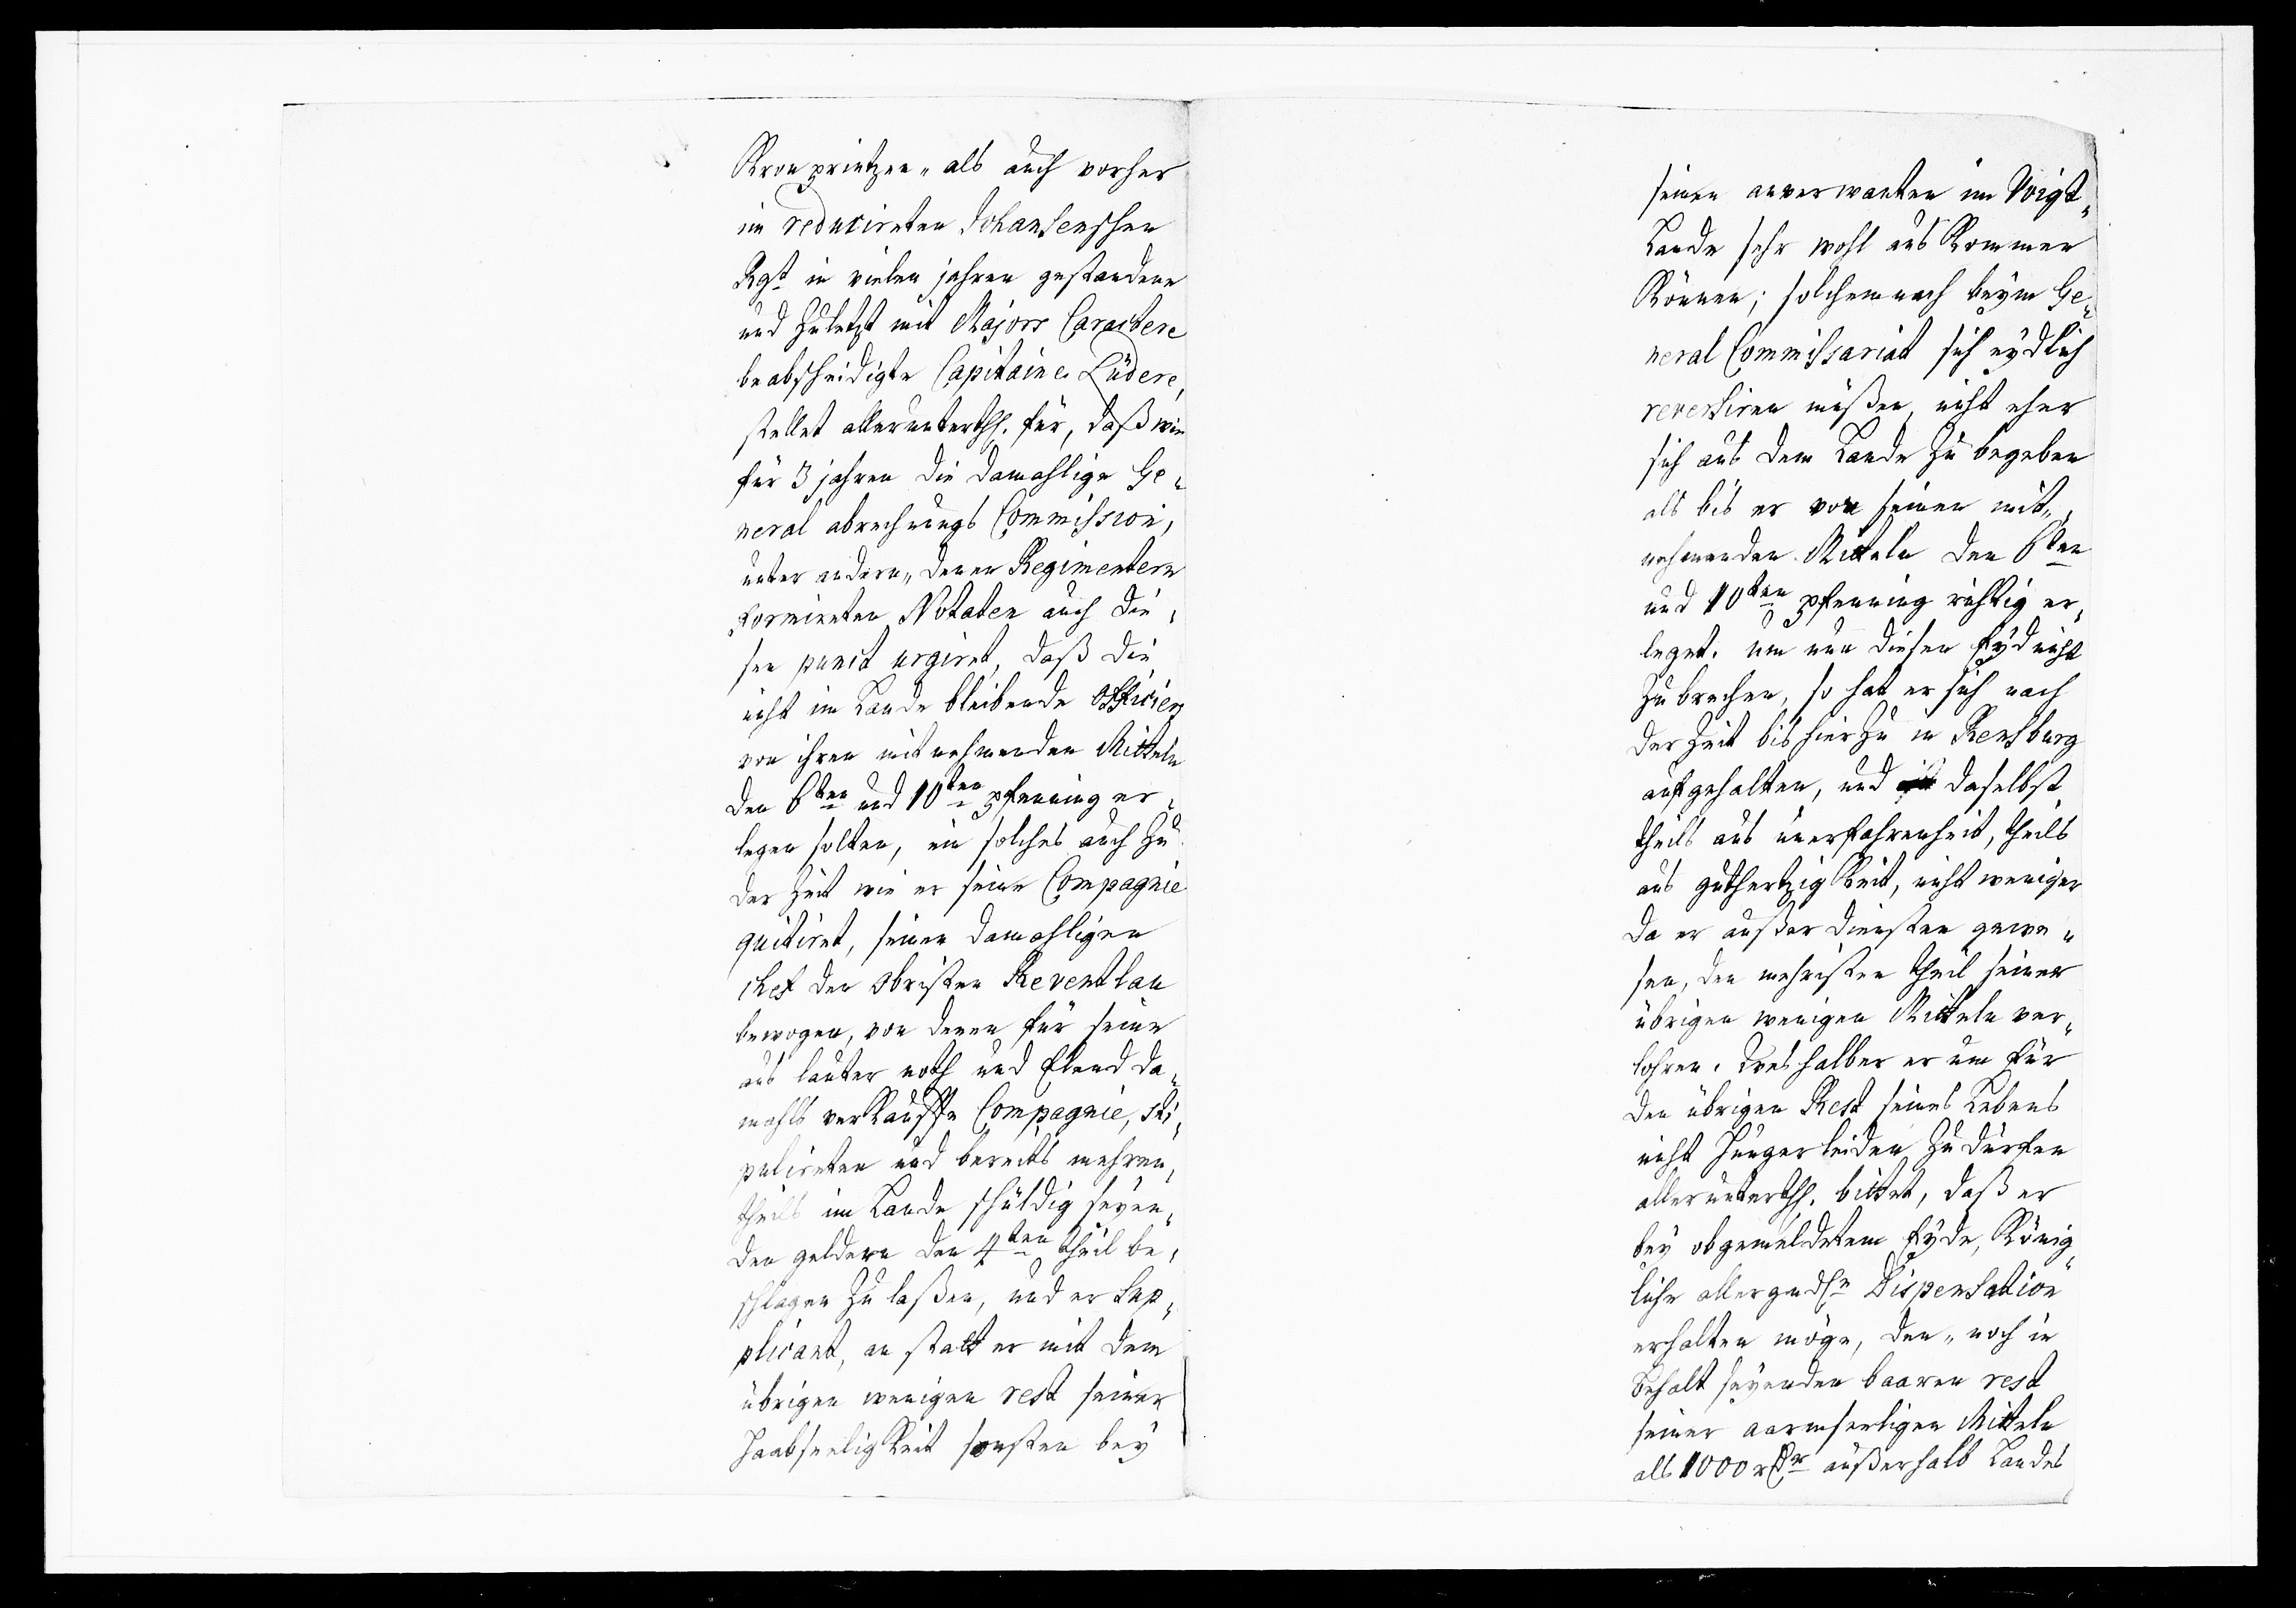 Kronprintzen- als auch vorher
im reducireten Schansenschen
Rgt in vielen jahren gestandene
und zuletzt mit Majors Caractere
beabscheidigte Capitaine Lüders,
stellet allerunterthl. für, daß wie
für 3 jahren die damahlige Ge-
neral abrechnungs Commission,
unter andern- denen Regimentern
formireten Notaten auch die-
sen punct urgiret, daß die
nicht im Lande bleibende Officiers
von ihren mitnehmenden Mitteln
den 6ten und 10ten pfenning er-
legen solten, ein solches auch zu
der Zeit wie er seine Compagnie
quitiret, seinen damahligen
chef den Obristen Reventlau
bewogen, von denen für seine
aus lauter noth und Elend da-
mahls verkauffte Compagnie, sti-
pulireten und bereits mehren-
theils im Lande schuldig seyen-
den geldern den 4ten theil be-
schlagen zu laßen, und er Sup-
plicant, an statt er mit dem
übrigen wenigen rest seiner
Haabseeligkeit sonsten bey
seinen anverwanten im Voigt-
Lande sehr wohl aus kommen
können; solchemnach beym Ge-
neral Commissariat sich eydlich
reversiren müßen, nicht eher
sich aus dem Lande zu begeben
als bis er von seinen mit-
nehmenden Mitteln den 6ten
und 10ten pfenning richtig er-
leget. um nun diesen Eyd nicht
zu brechen, so hat er sich nach
der Zeit bis hierzu in Rensburg
aufgehalten, und daselbst
theils aus unerfahrenheit, theils
aus guthertzigkeit, nicht weniger
da er außer diensten gewe-
sen, den mehristen theil seiner
übrigen wenigen Mitteln ver-
lohren. Weshalber er um für
den übrigen Rest seines Lebens
nicht Hunger leiden zu dürfen
allerunterthl. bittet, daß er
bey obgemeldetem Eyde, König-
liche allergndste Dispensation
erhalten möge, den- noch in
behalt seyenden baaren rest
seiner aarmseeligen Mitteln
als 1000 rthlr außerhalb Landes